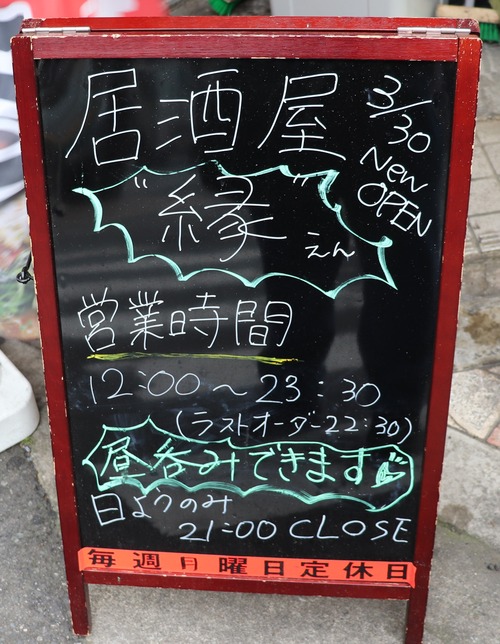 居酒屋
3/30
New
OPEN
"縁"
えん
営業時間
12:00～23:30
(ラストオーダー22:30)
昼呑みできます
日ようのみ
21:00 CLOSE
毎週月曜日定休日